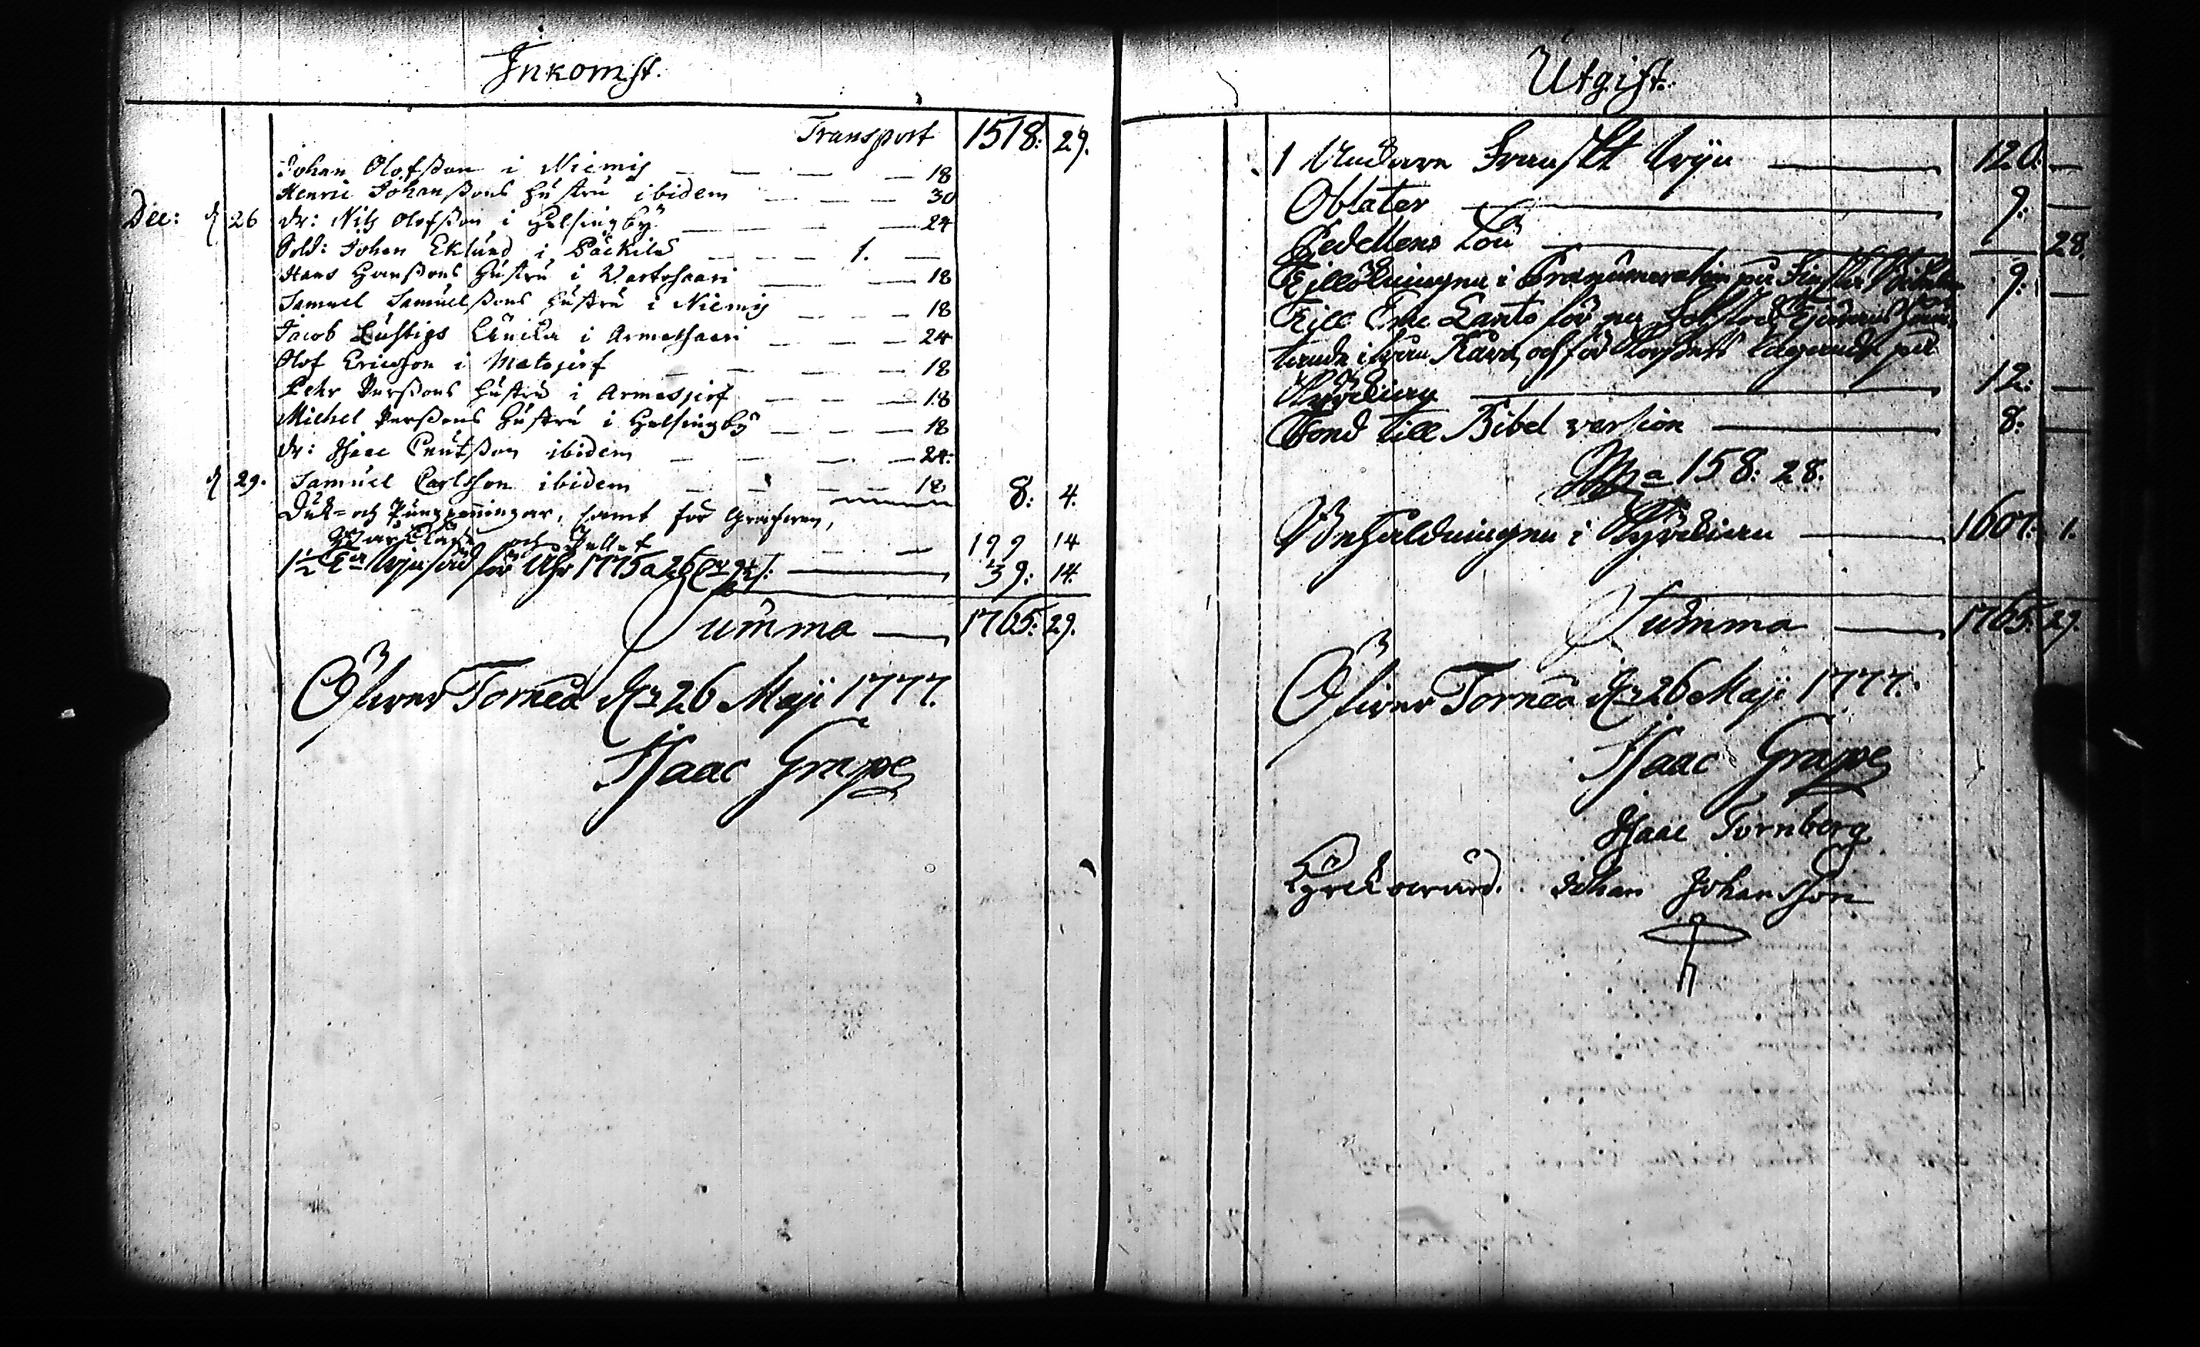 Inkomst.
Transport 1518: 29.
Johan Olofsson i Niemis — — — 18
Henric Johanssons hustru ibidem — — — 30
Dec: d 26 dr: Nils Olofsson i Helsingby — — — 24
Sold: Johan Eklund i Päckilä — — — 1. —
Hans Hanssons hustru i Wartosaari — — 18
Samuel Samuelssons hustru i Niemis — — 18
Jacob Lustigs Änka i Armassaari — — 24
Olof Ericsson i Matojerf — — — 18
Pehr Perssons hustru i Armasjerf — — 18
Michel Perssons hustru i Helsingby — — 18
dr: Isaac Cnutsson ibidem — — — 24.
d 29. Samuel Carlsson ibidem — — — 18 8: 4.
och Pungpenningar, samt för Grafwar,
och — — 199 14
1½ för Åhr 1775 a 26 — 39: 14.
Summa — 1765: 29.
Öfwer Torneå d. 26 Maji 1777.
Isaac Grape
Utgift.
1 Franskt Wijn — 120. —
Oblater — 9: —
Pedellens Lön — 28.
i Prænumeration på 9: —
Till Eric Lanto för
och för på
Kyrckian — 12. —
Fond till Bibel version — 8: —
158: 28.
Behåldningen i Kyrckian — 1607: 1.
Summa — 1765: 29.
Öfwer Torneå d. 26 Maji 1777.
Isaac Grape
Isaac Tornberg
Kyrckowärd. Johan Johansson